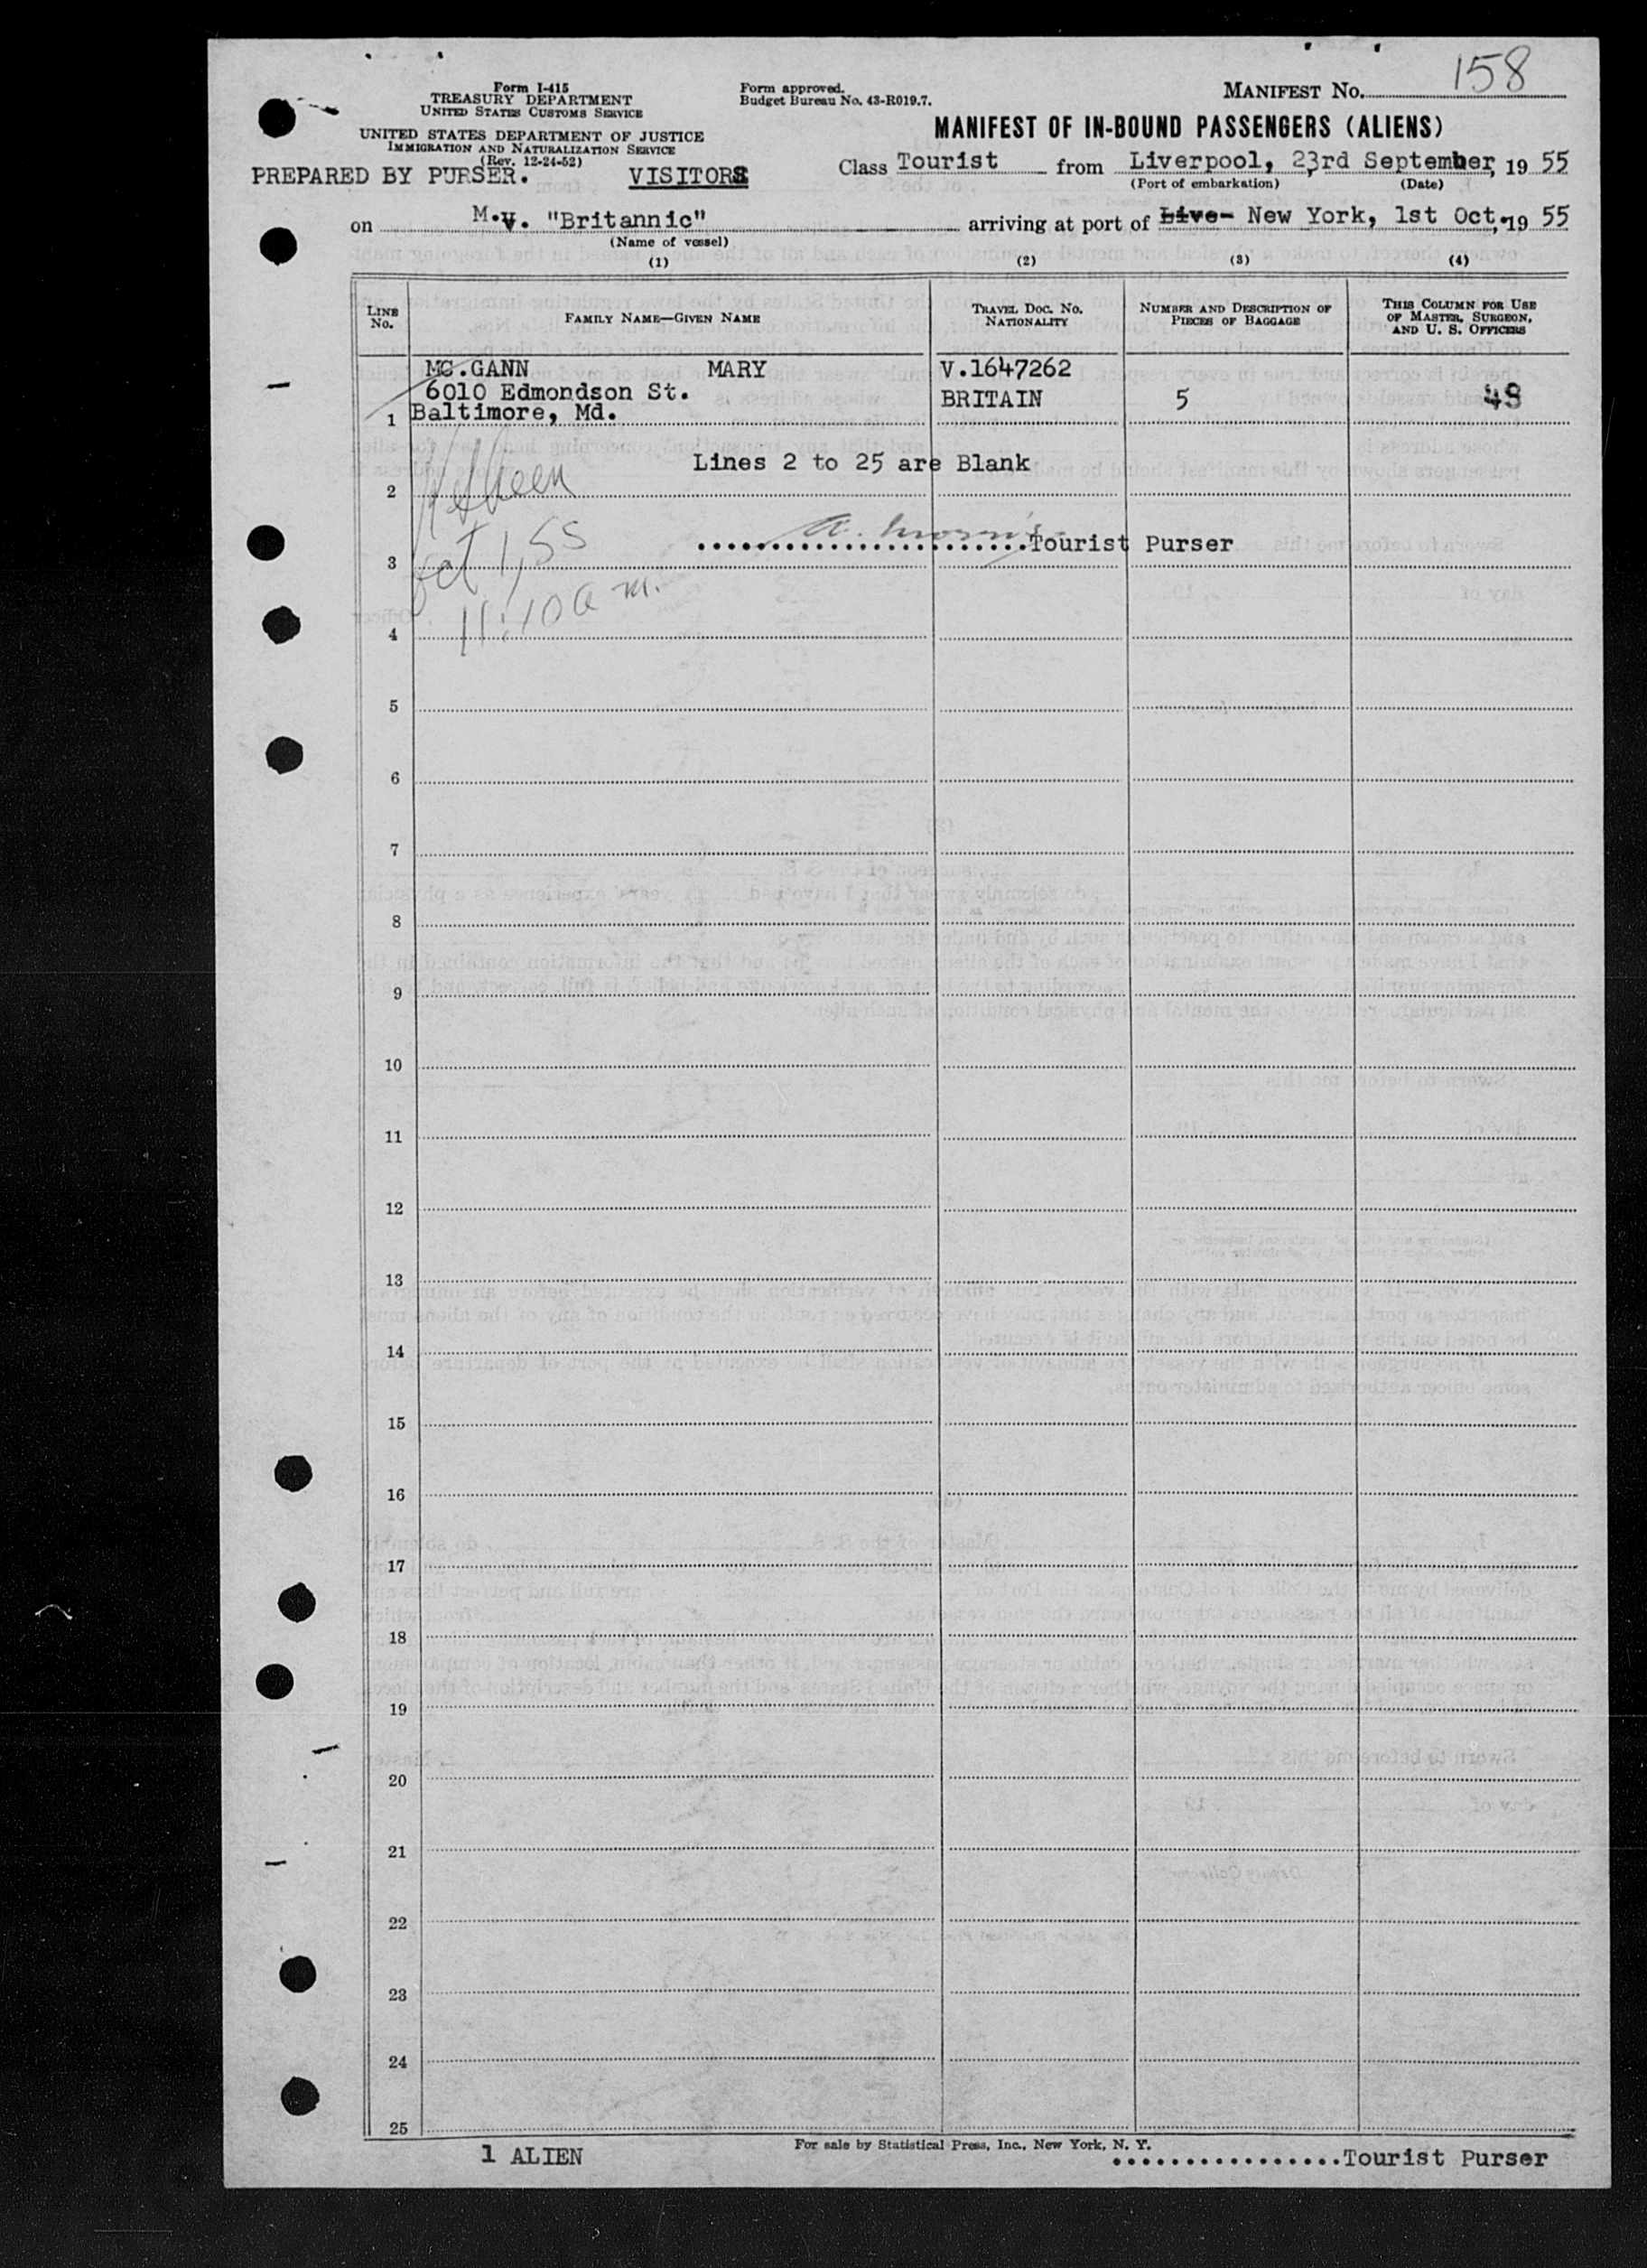 158
Form I-415
TREASURY DEPARTMENT
UNITED STATES CUSTOMS SERVICE
UNITED STATES DEPARTMENT OF JUSTICE
IMMIGRATION AND NATURALIZATION SERVICE
(Rev. 12-24-52)
Form approved.
Budget Bureau No. 43-R019.7.
MANIFEST No.
MANIFEST OF IN-BOUND PASSENGERS (ALIENS)
PREPARED BY PURSER. VISITORS
Class Tourist from Liverpool, 23rd September, 19 55
(Port of embarkation) (Date)
on M.V. "Britannic" arriving at port of Live- New York, 1st Oct, 19 55
(Name of vessel)
(1) (2) (3) (4)
LINE No.
FAMILY NAME—GIVEN NAME
TRAVEL DOC. NO. NATIONALITY
NUMBER AND DESCRIPTION OF PIECES OF BAGGAGE
THIS COLUMN FOR USE OF MASTER, SURGEON, AND U. S. OFFICERS
MC.GANN MARY V.1647262
6010 Edmondson St. BRITAIN 5 48
1 Baltimore, Md.
Lines 2 to 25 are Blank
2
Tourist Purser
3 Oct 1, 55
4 11:10 a m.
5
6
7
8
9
10
11
12
13
14
15
16
17
18
19
20
21
22
23
24
25
1 ALIEN
For sale by Statistical Press, Inc., New York, N. Y.
Tourist Purser